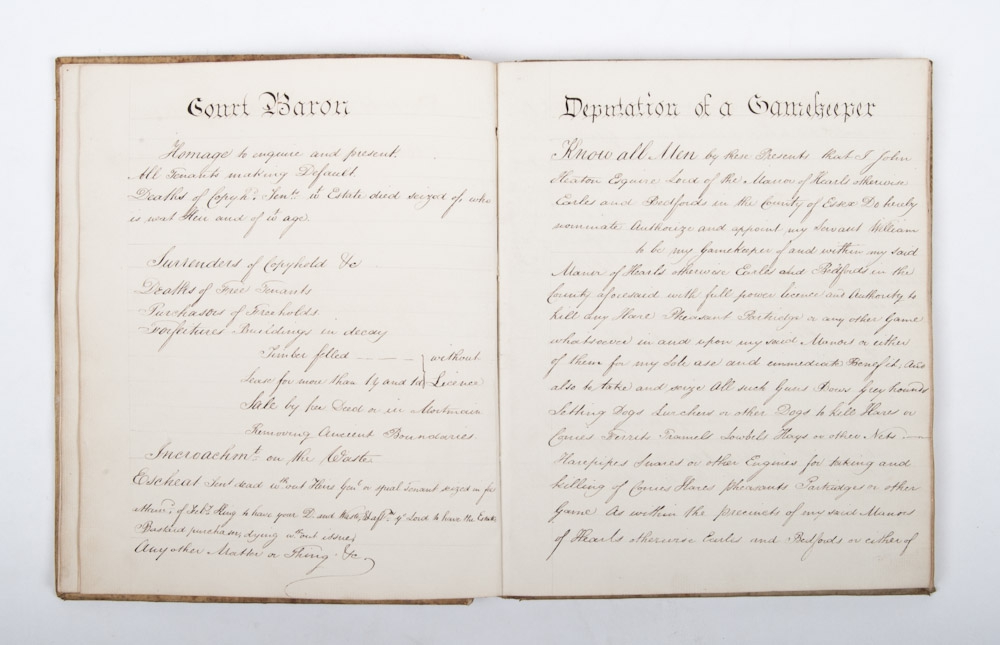 Court Baron
Homage to enquire and present.
All Tenants making Default
Deaths of Copyhs. Tents. wt Estate died seized of, who
is next Heir and of wt age.
Surrenders of Copyhold &c
Deaths of Free Tenants
Purchasors of Freeholds
Forfeitures Buildings in decay
Timber felled — — — without
Lease for more than 1y and 1d Licence
Sale by Deed or in Mortmain
Removing Ancient Boundaries
Incroachmts. on the Waste
Escheat Tent dead wthout Heirs Genl or spcial Tenant seized in fee
of Felo. King to have year D. and Waste, & aftr. ye Lord to have the Estate
Bastard purchaser, dying wthout issue,
Any other Matter or Thing &c.
Deputation of a Gamekeeper
Know all Men by these Presents that I John
Heaton Esquire Lord of the Manor of Hearls otherwise
Earles and Bedfords in the County of Essex Do hereby
nominate Authorize and appoint my Servant William
to be my Gamekeeper of and within my said
Manor of Hearls otherwise Earles and Bedfords in the
County aforesaid with full power licence and Authority to
kill any Hare Pheasant Partridge or any other Game
whatsoever in and upon my said Manors or either
of them for my Sole use and immediate Benefit; And
also to take and seize All such Guns Bows Greyhounds
Setting Dogs Lurchers or other Dogs to kill Hares or
Conies Ferrits Tramels Lowbels Hays or other Nets
Harepipes Snares or other Engines for taking and
killing of Conies Hares pheasants Partridges or other
Game As within the precincts of my said Manors
of Hearls otherwise Earles and Bedfords or either of